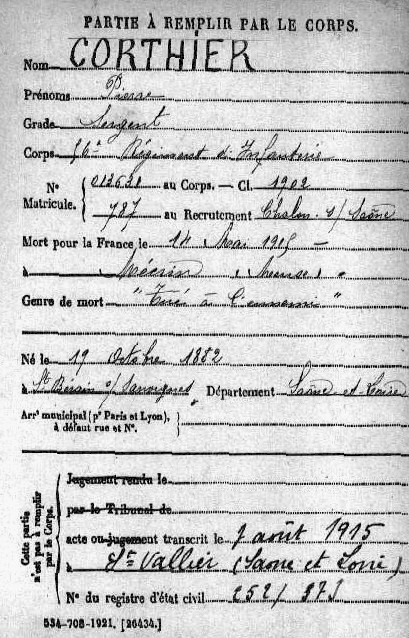 PARTIE À REMPLIR PAR LE CORPS.
Nom CORTHIER
Prénoms Pierre
Grade Sergent
Corps 56e Régiment d'Infanterie
N° Matricule. 013638 au Corps. — Cl. 1902
787 au Recrutement Chalon s/ Saône
Mort pour la France le 14 Mai 1915 —
à Mécrin (Meuse) "
Genre de mort "Tué à l'ennemi"
Né le 19 Octobre 1882
à St Bérain s/ Sanvignes Département Saône et Loire
Arrt municipal (pr Paris et Lyon), à défaut rue et N°.
Cette partie n'est pas à remplir par le Corps.
Jugement rendu le
par le Tribunal de
acte ou jugement transcrit le août 1915
à St Vallier (Saone et Loire)
N° du registre d'état civil 252/273
534-708-1921. [26434.]